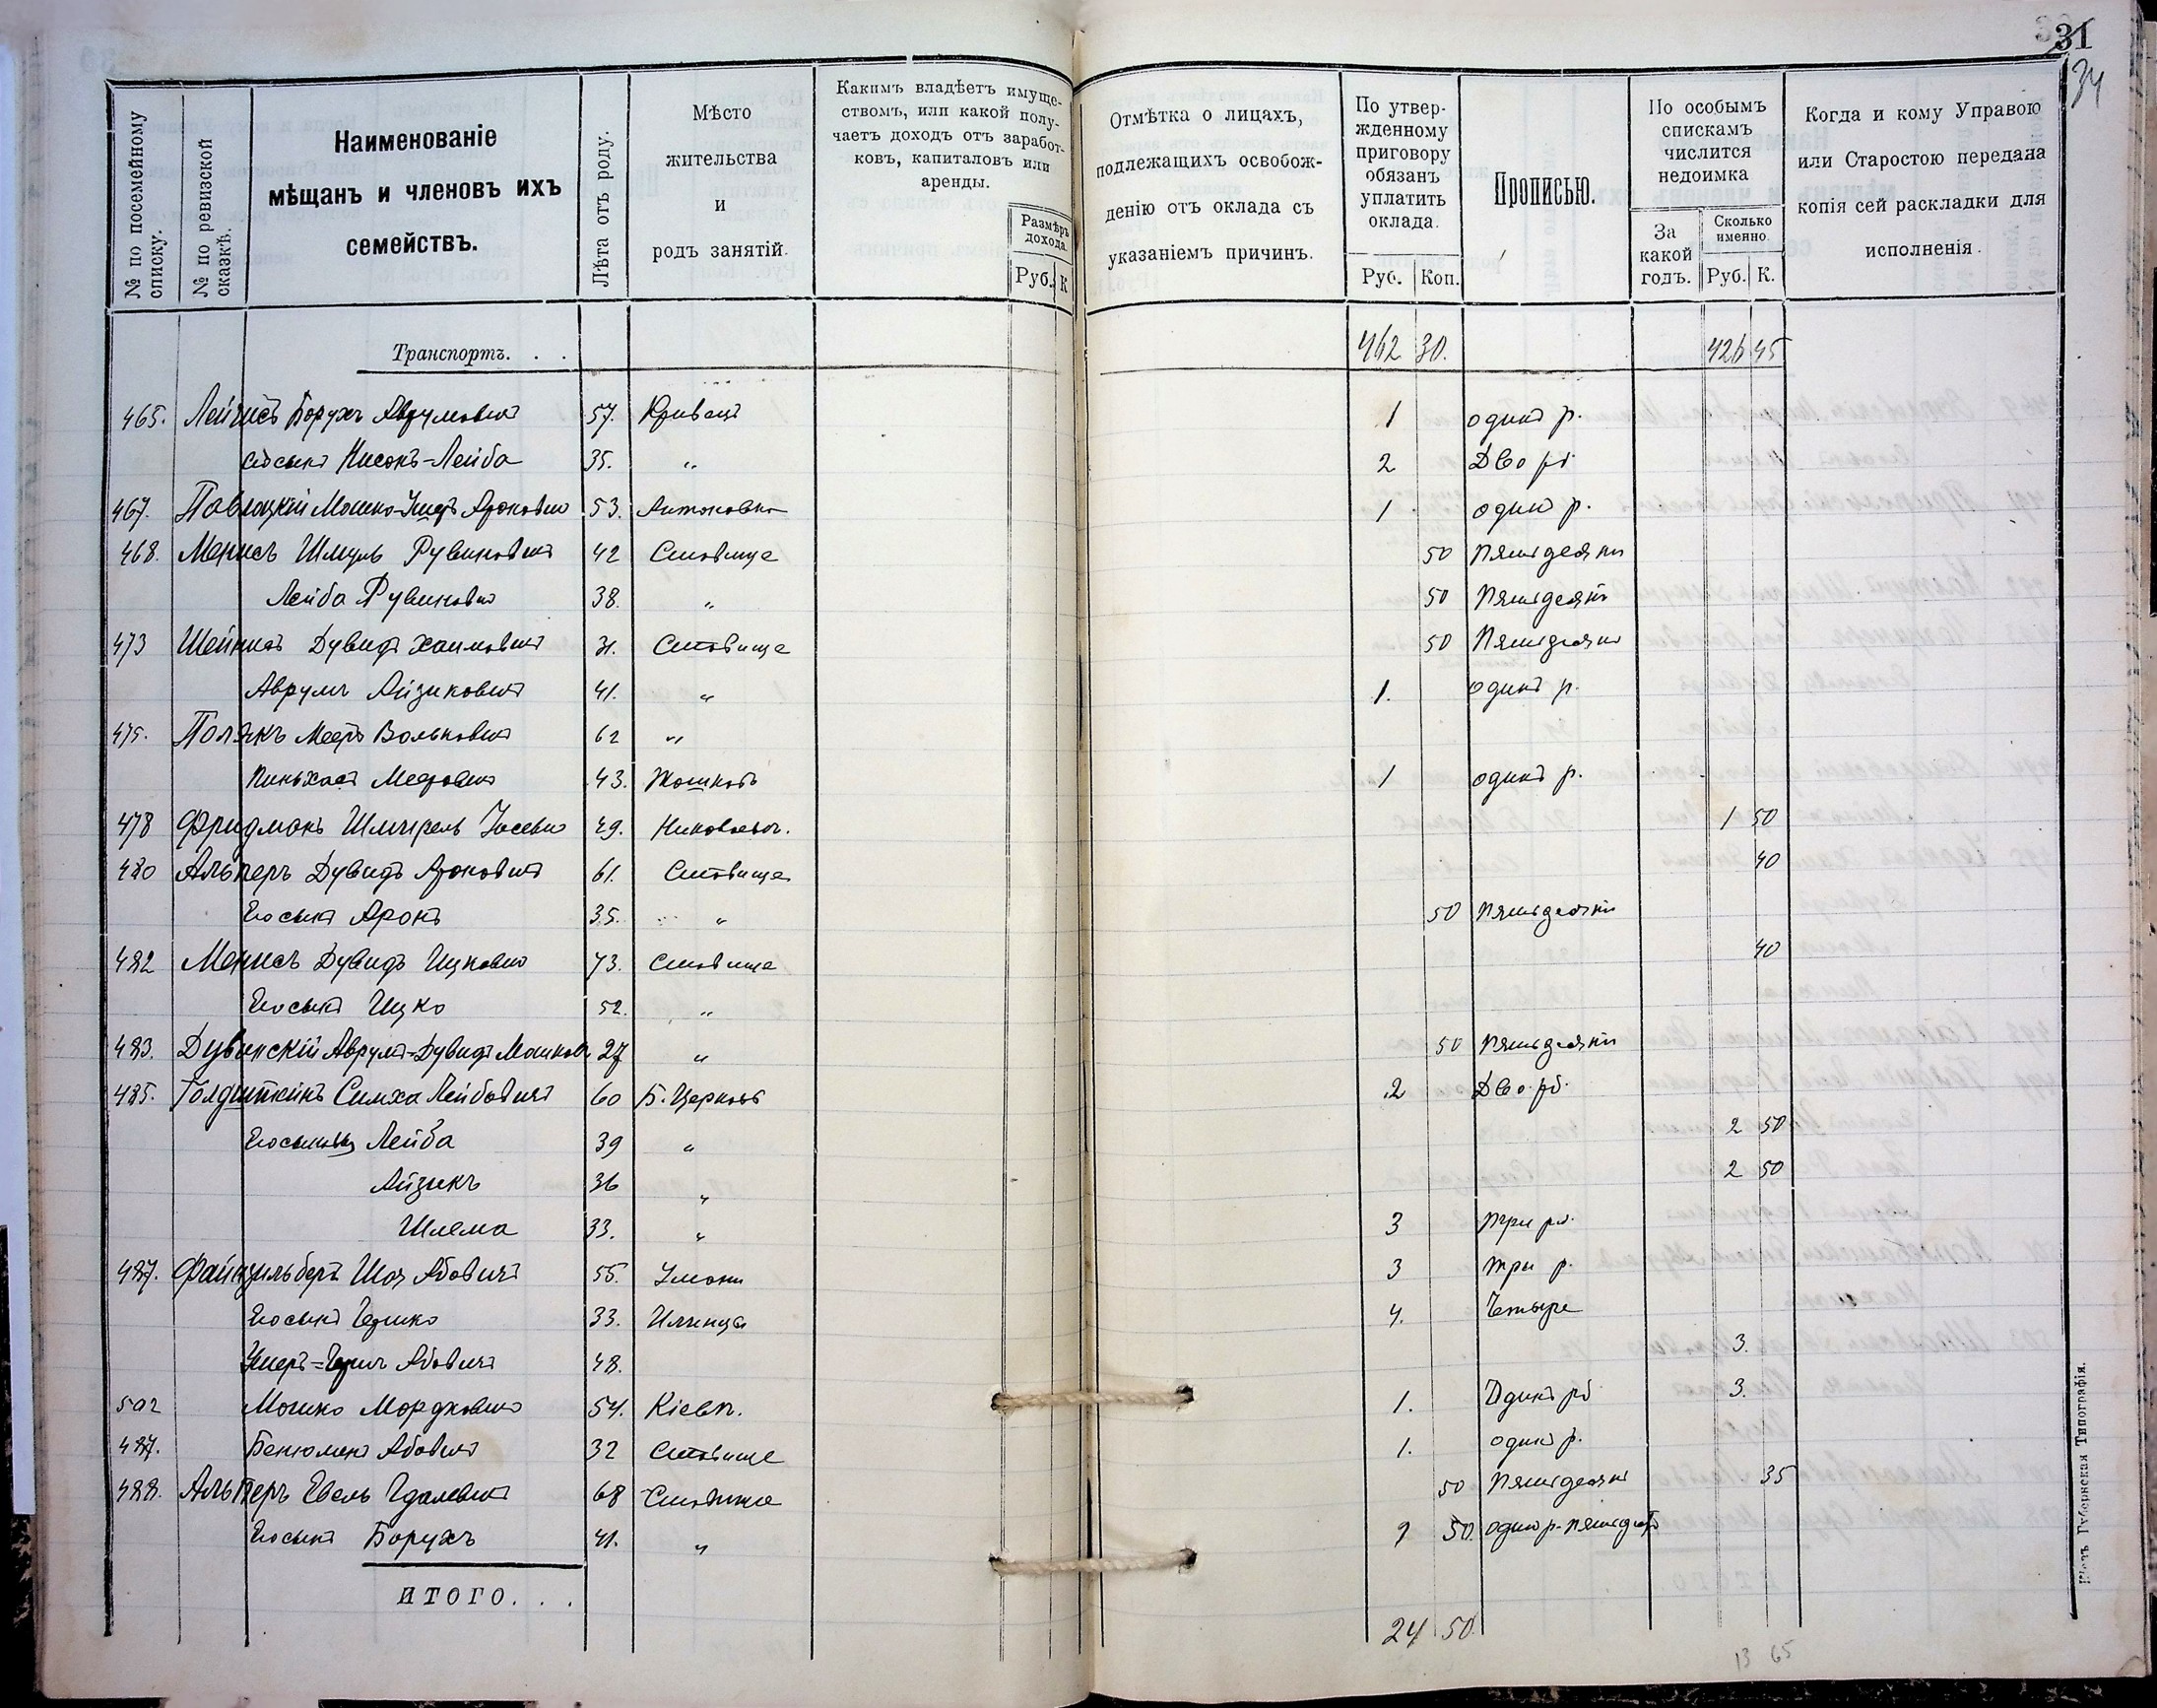 31
34
№ по посемейному списку.
№ по ревизской сказкѣ.
Наименованіе
мѣщанъ и членовъ ихъ
семействъ.
Лѣта отъ роду.
Мѣсто
жительства
и
родъ занятій.
Какимъ владѣетъ имуще-
ствомъ, или какой полу-
чаетъ доходъ отъ заработ-
ковъ, капиталовъ или
аренды.
Размѣръ
дохода.
Руб. К
Отмѣтка о лицахъ,
подлежащихъ освобож-
денію отъ оклада съ
указаніемъ причинъ.
По утвер-
жденному
приговору
обязанъ
уплатить
оклада.
Руб. Коп.
Прописью.
По особымъ
спискамъ
числится
недоимка
За
какой
годъ.
Сколько
именно.
Руб. К.
Когда и кому Управою
или Старостою передана
копія сей раскладки для
исполненія.
Транспортъ. . . 462 30. 426 45
465. Борухъ Аврумовичъ 57. 1 одинъ р.
Нисонъ-Лейба 35. " 2 Два рб.
467. Мошко- Ароновичъ 53. Антоновка 1 одинъ р.
468. Менисъ Шмуль Рувиновичъ 42 Ставище 50 пятьдесятъ
Лейба Рувиновичъ 38. " 50 пятьдесятъ
473 Дувидъ Хаимовичъ 31. Ставище 50 пятьдесятъ
Аврумъ Айзиковичъ 41. " 1. одинъ р.
475. Полякъ Мееръ Вольковичъ 62 "
Пинхасъ Мееровичъ 43. Жашковъ 1 одинъ р.
478 Фридманъ 49. 1 50
480 Альперъ Дувидъ Ароновичъ 61. Ставище 40
Его сынъ Аронъ 35. " 50 пятьдесятъ
482 Менисъ Дувидъ Ицковичъ 73. Ставище 40
Его сынъ Ицко 52. "
483. Дубинскій Аврумъ-Дувидъ Мошков 27 " 50 пятьдесятъ
485. Симха Лейбовичъ 60 Б. Церковь 2 Два рб.
Его сыновья Лейба 39 " 2 50
Айзикъ 36 " 2 50
Шлема 33. " 3 три рб.
487. Файнзильберъ Шая Абовичъ 55. Умань 3 три р.
Его сынъ Гершко 33. Илинцы 4. Четыре
Абовичъ 48. 3.
502 Мошко Мордковичъ 54. Кіевъ. 1. Одинъ рб 3.
487. Бенюминъ Абовичъ 32 Ставище 1. одинъ р.
488. Альперъ Евель Гдалевичъ 68 Ставище 50 пятьдесятъ 35
Его сынъ Борухъ 41. " 1 50. одинъ р. пятьдесятъ
ИТОГО. . . 24 50.
13 65
Губернская Типографія.